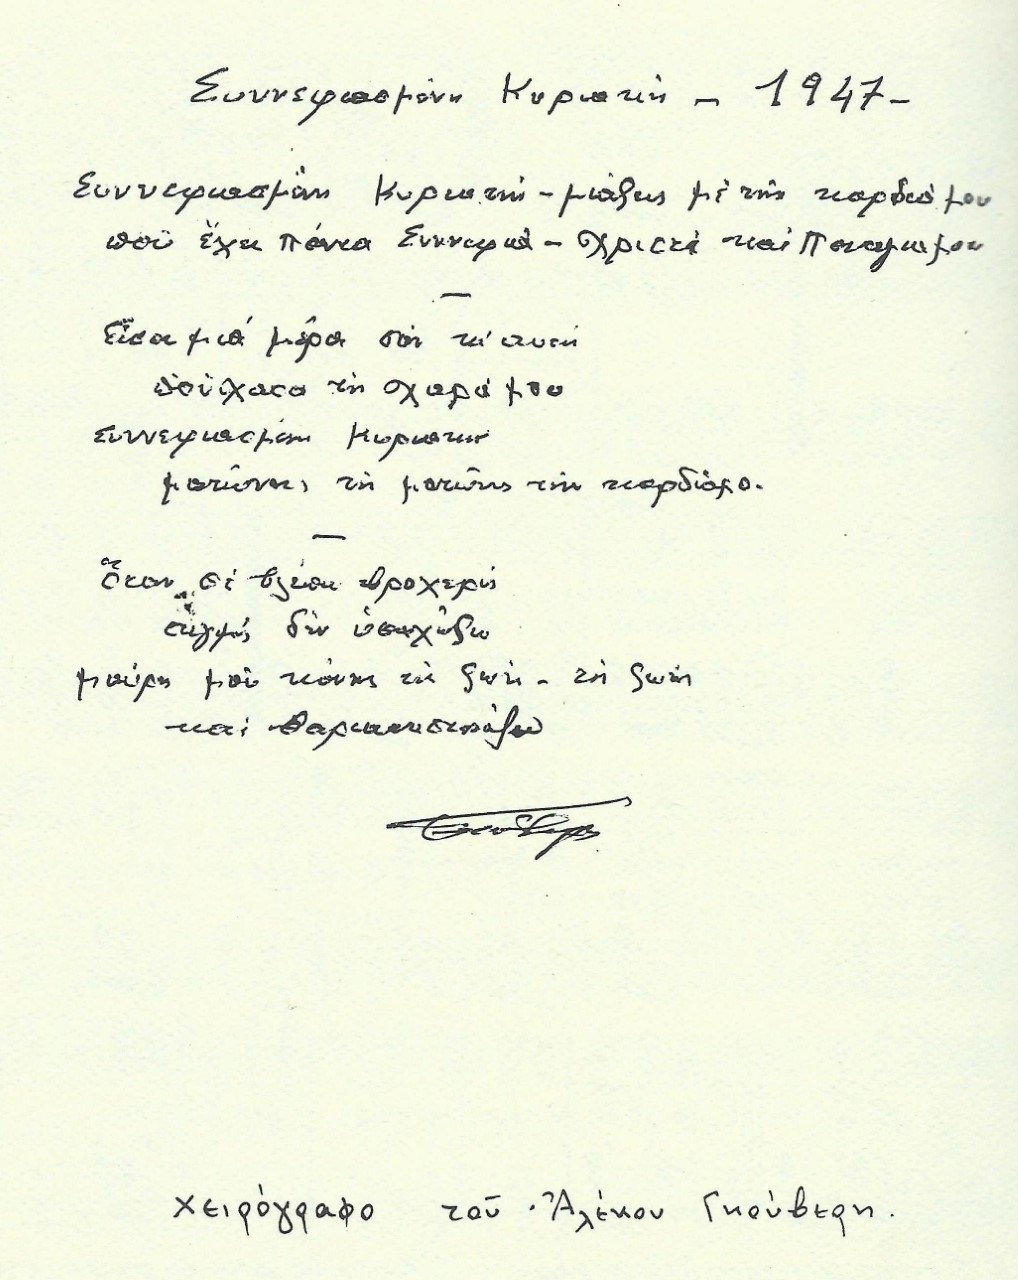 Συννεφιασμένη Κυριακή – 1947 –
Συννεφιασμένη Κυριακή – μιάζεις μέ τήν καρδιά μου
πού ἔχει πάντα Συννεφιά – Χριστέ καί Παναγιά μου
—
Εἶσαι μιά μέρα σάν κι' αυτή
πού χασα τή χαρά μου
συννεφιασμένη Κυριακή
ματώνεις τή ματώνεις τήν καρδιά μο.
—
Ὅταν σέ βλέπω βροχερή
στιγμή δέν ἡσυχάζω
μαύρη μού κάνεις τή ζωή – τή ζωή
καί βαριαναστενάζω
χειρόγραφο τοῦ Ἀλέκου Γκούβερη.